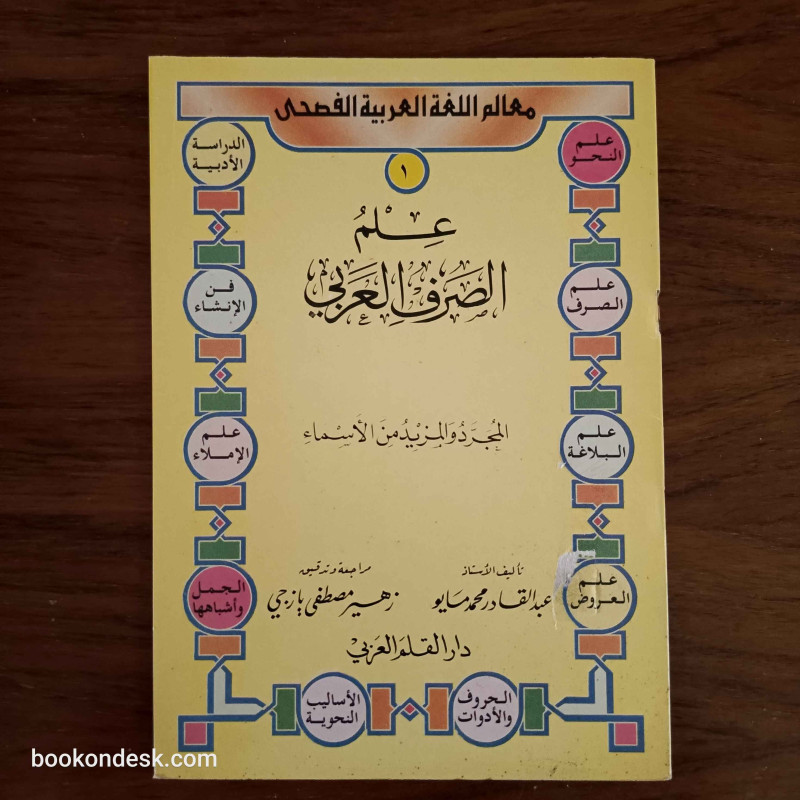 معالم اللغة العربية الفصحى
١
عِلْمُ
الصَرفِ العَرَبي
المُجَرَّدُ وَالمَزيدُ مِنَ الأَسمَاء
علم النحو
علم الصرف
علم البلاغة
علم العروض
الدراسة الأدبية
فن الإنشاء
علم الإملاء
الجمل وأشباهها
تأليف الأستاذ
عبدالقادر محمد مايو
مراجعة وتدقيق
زهير مصطفى يازجي
دار القلم العربي
الحروف والأدوات
الأساليب النحوية
bookondesk.com